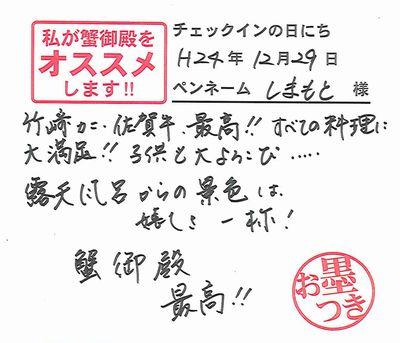 私が蟹御殿を
オススメ
します!!
チェックインの日にち
H24年12月29日
ペンネーム しまもと 様
竹崎カニ・佐賀牛 最高!! すべての料理に
大満足!! 子供も大よろこび.....
露天風呂からの景色は、
嬉しさ一称!
蟹御殿
最高!!
お墨
つき